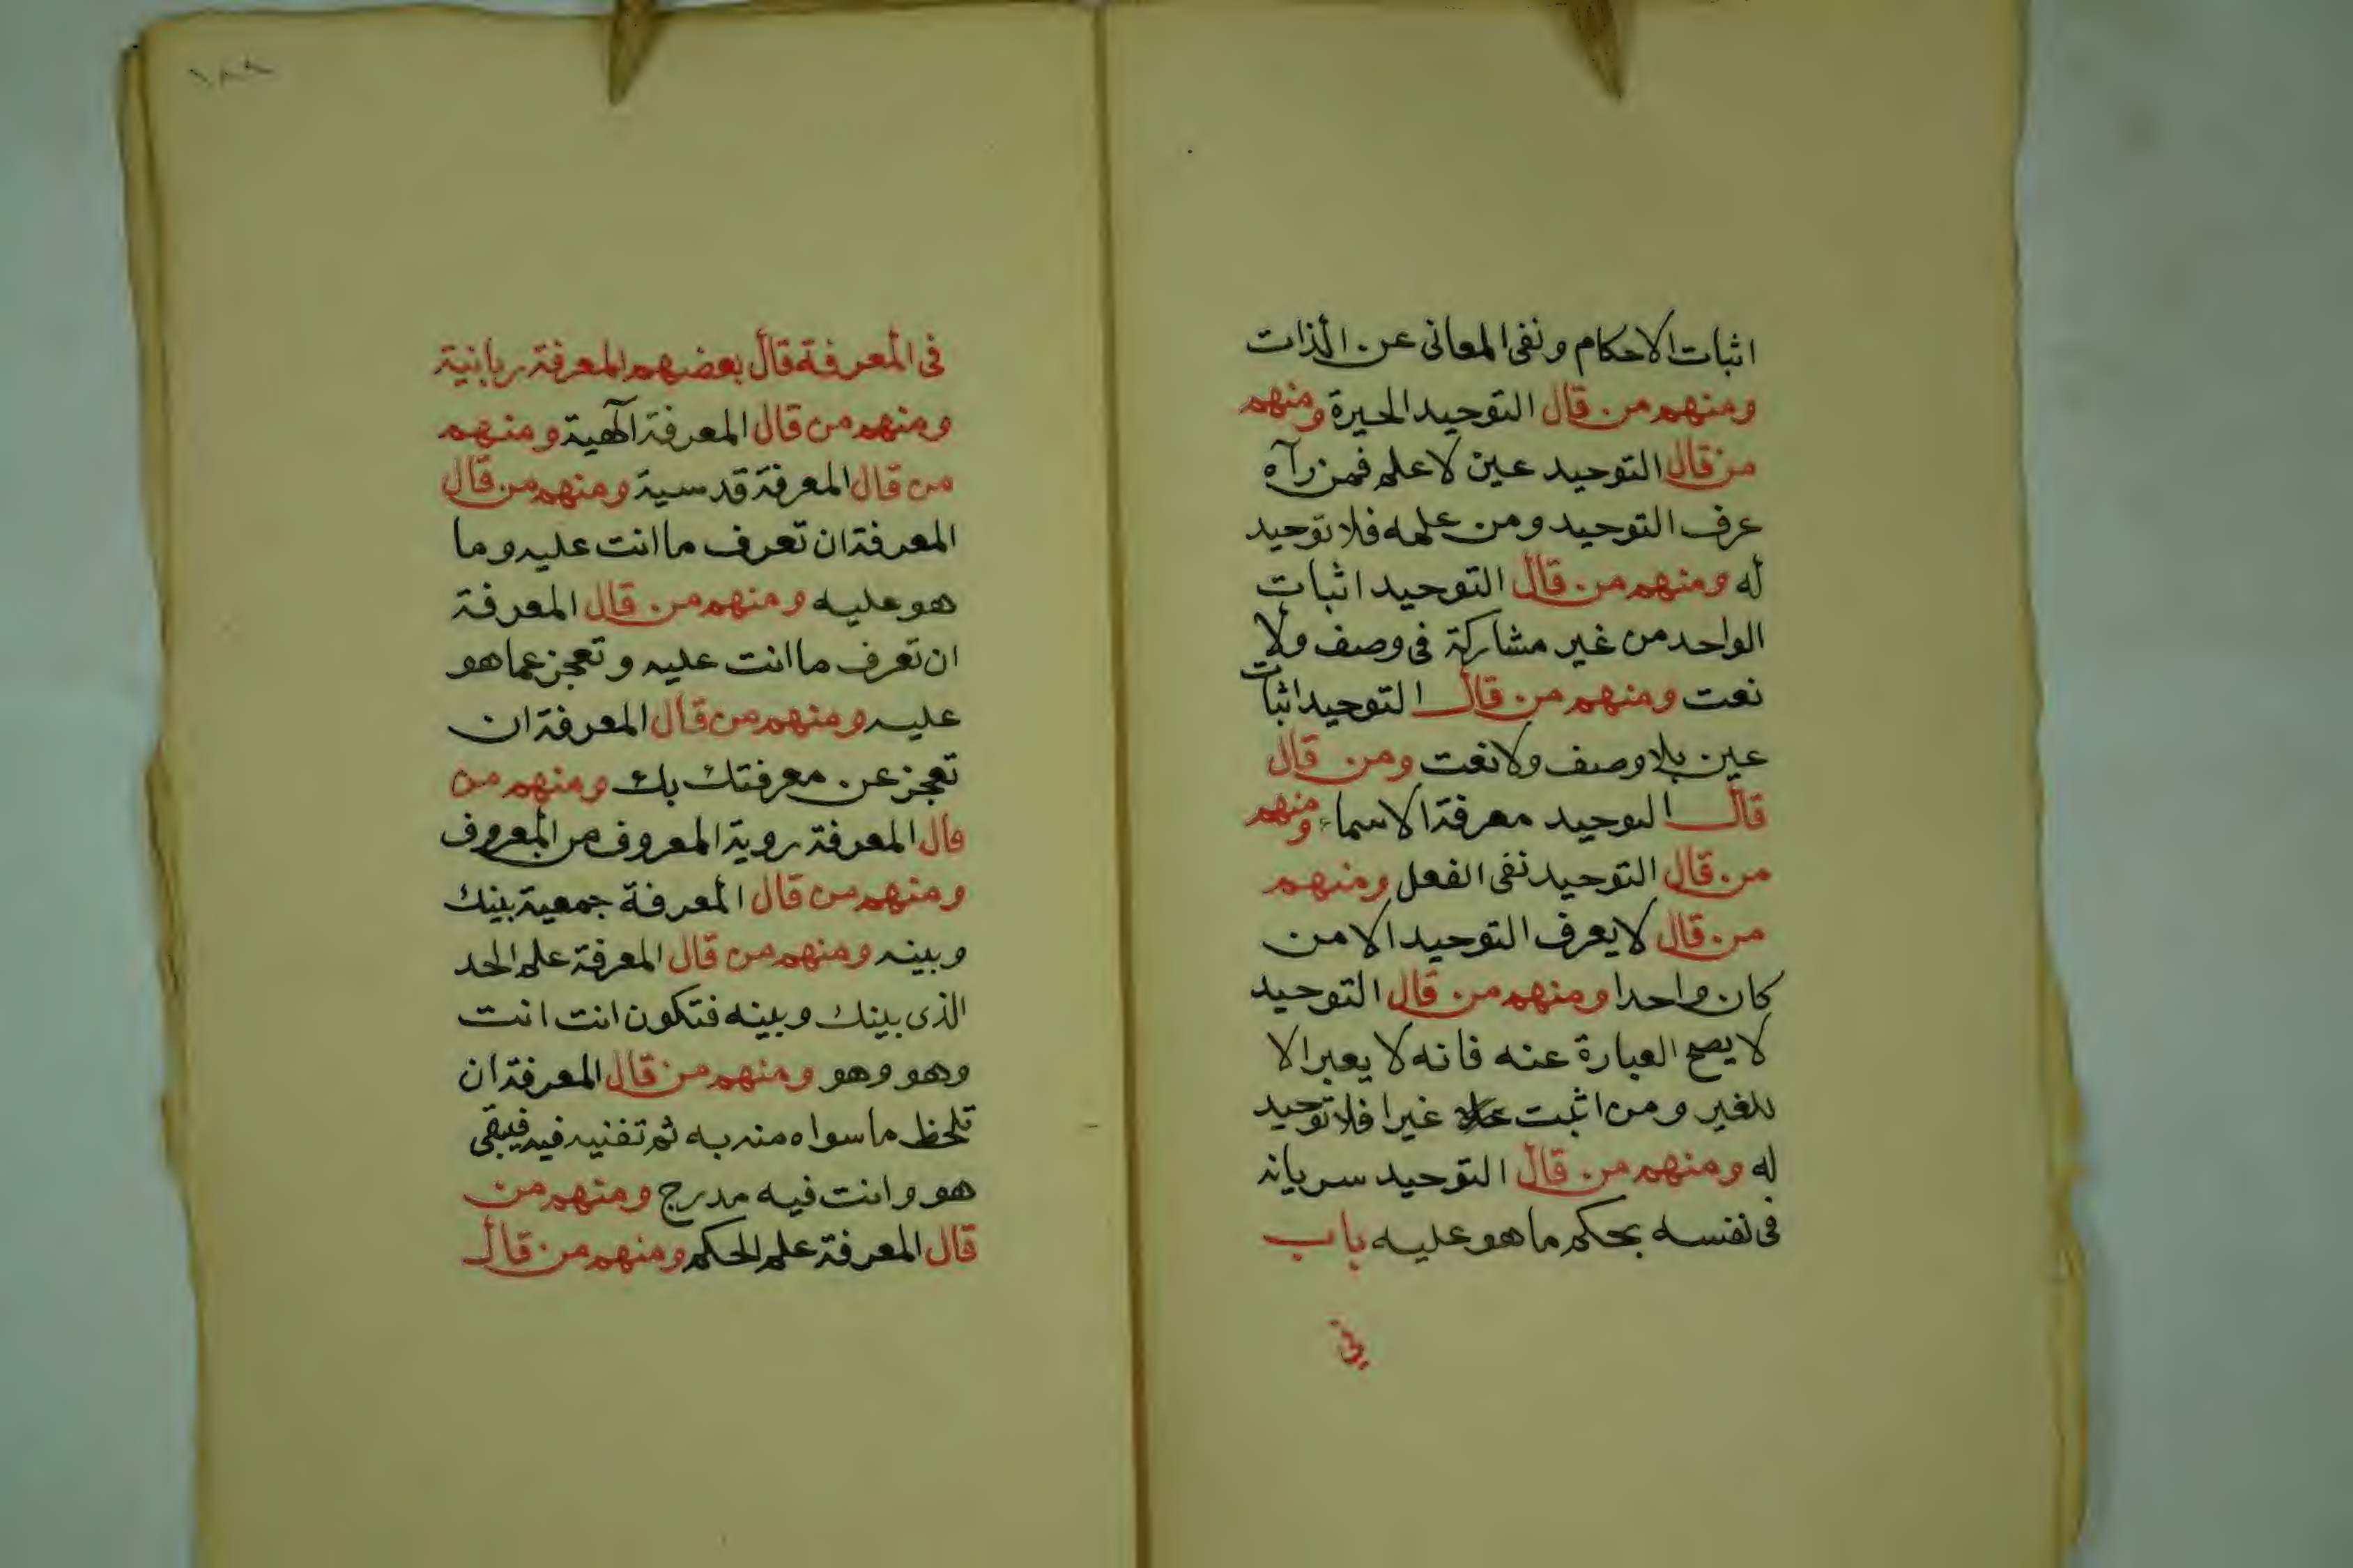 اثبات الاحكام ونفى المعانى عن الذات
ومنهم من قال التوحيد الحيرة ومنهم
من قال التوحيد عين لا علم فمن رآه
عرف التوحيد ومن علمه فلا توحيد
له ومنهم من قال التوحيد اثبات
الواحد من غير مشاركة فى وصف ولا
نعت ومنهم من قال التوحيد اثبات
عين بلا وصف ولا نعت ومن قال
قال التوحيد معرفة الاسماء ومنهم
من قال التوحيد نفى الفعل ومنهم
من قال لا يعرف التوحيد الا من
كان واحدا ومنهم من قال التوحيد
لا يصح العبارة عنه فانه لا يعبر الا
للغير ومن اثبت غيرا فلا توحيد
له ومنهم من قال التوحيد سريانه
فى نفسه بحكم ما هو عليه باب
في
١٨٨
فى المعرفة قال بعضهم المعرفة ربانية
ومنهم من قال المعرفة آلهية ومنهم
من قال المعرفة قدسية ومنهم من قال
المعرفة ان تعرف ما انت عليه وما
هو عليه ومنهم من قال المعرفة
ان تعرف ما انت عليه وتعجز عما هو
عليه ومنهم من قال المعرفة ان
تعجز عن معرفتك بك ومنهم من
قال المعرفة روية المعروف من المعروف
ومنهم من قال المعرفة جمعية بينك
وبينه ومنهم من قال المعرفة علم الحد
الذى بينك وبينه فتكون انت انت
وهو وهو ومنهم من قال المعرفة ان
تلحظ ما سواه منه به ثم تفنيه فيه فيبقى
هو وانت فيه مدرج ومنهم من
قال المعرفة علم الحكم ومنهم من قال